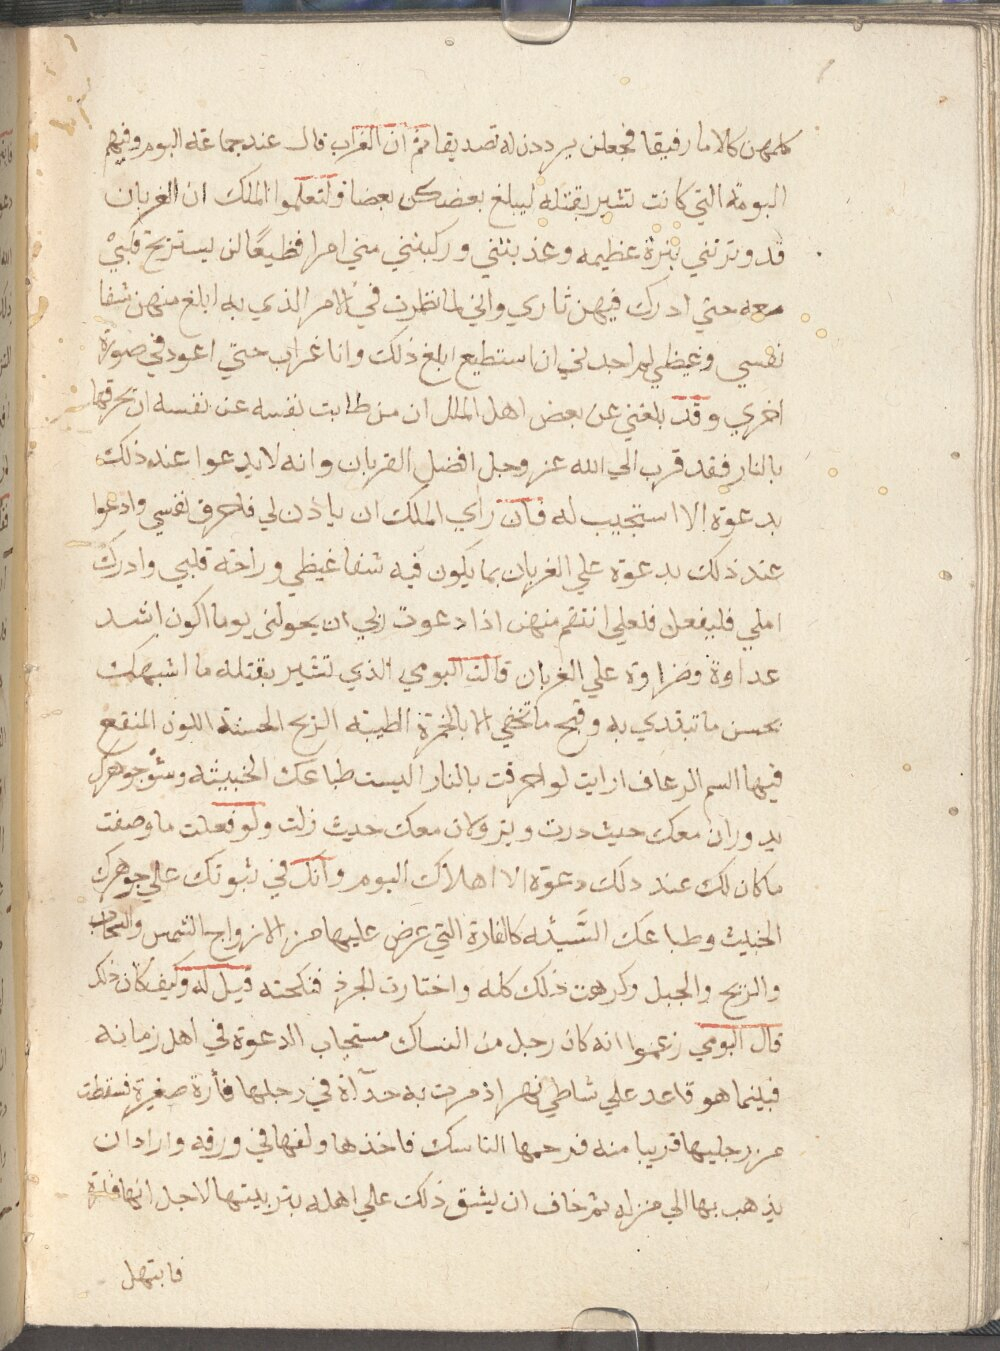 كلمهن كلاما رفيقا فجعلن يرددن له تصديقا ثم ان الغراب قال عند جماعة البوم وفيهم
البومة التي كانت تشير بقتله ليبلغ بعضكن بعضا ولتعلموا الملك ان الغربان
قد وترتني بترة عظيمه وعذبنني وركبنني مني امرا فظيعا لن يستريح قلبي
معه حتي ادرك فيهن ثاري واني لما نظرت في الامر الذي به ابلغ منهن شفا
نفسي وغيظي لم اجدني ان استطيع ابلغ ذلك وانا غراب حتي اعود في صورة
اخري وقد بلغني عن بعض اهل الملل ان من طابت نفسه عن نفسه ان يحرقها
بالنار فقد قرب الي الله عز وجل افضل القربان وانه لا يدعوا عند ذلك
بدعوة الا استجيب له فان راي الملك ان ياذن لي فاحرق نفسي وادعوا
عند ذلك بدعوة علي الغربان بما يكون فيه شفا غيظي وراحة قلبي وادرك
املي فليفعل فلعلي انتقم منهن اذا دعوت ربي ان يحولني بوما اكون اشد
عداوة وضراوة علي الغربان قالت البومي الذي تشير بقتله ما اشبهك
بحسن ما تبتدي به وقبح ما تخفي الا بالخمرة الطيبة الريح الحسنة اللون المنقع
فيها السم الزعاف ارايت لو احرقت بالنار اليست طباعك الخبيثه وسو جوهرك
يدوران معك حيث درت ويزولان معك حيث زلت ولو فعلت ما وصفت
ما كان لك عند دلك دعوة الا اهلاك البوم وانك في ثبوتك علي جوهرك
الخبيث وطباعك السيئه كالفارة التي عرض عليها من الازواج الشمس والسحاب
والريح والجبل وكرهت ذلك كله واختارت الجرذ فنكحته قيل له وكيف كان ذلك
قال البومي زعموا انه كان رجل من النساك مستجاب الدعوة في اهل زمانه
فبينما هو قاعد علي شاطي نهر اذ مرت به حدآة في رجلها فأرة صغيرة فسقطت
من رجليها قريبا منه فرحمها الناسك فاخذها ولفها في ورقه واراد ان
يذهب بها الي منزله ثم خاف ان يشق ذلك علي اهله بتربيتها لاجل انها فارة
فابتهل